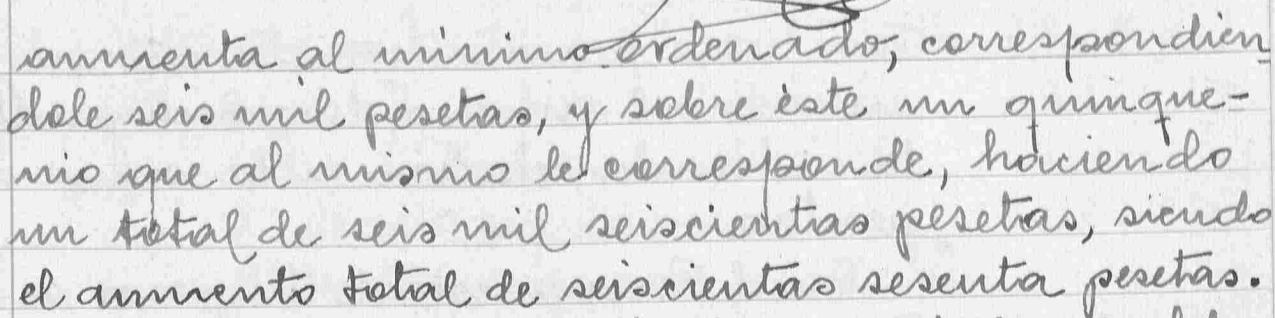 aumenta al minimo ordenado, correspondien
dole seis mil pesetas, y sobre èste un quinque-
nio que al mismo le corresponde, haciendo
un total de seis mil seiscientas pesetas, siendo
el aumento total de seiscientas sesenta pesetas.